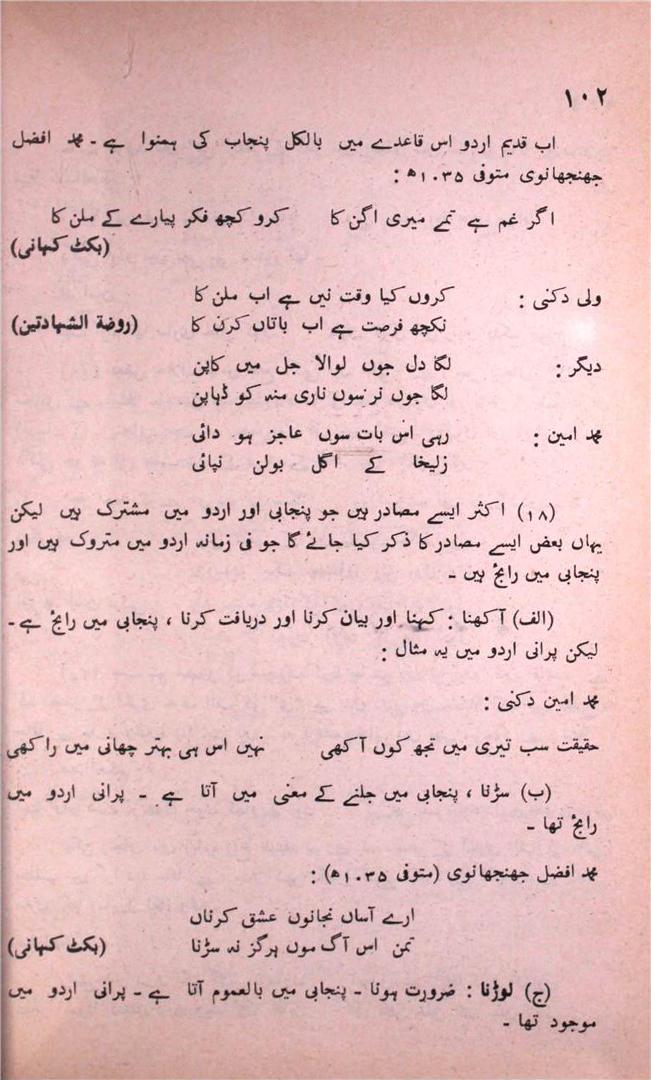 ۱۰۲
اب قدیم اردو اس قاعدے میں بالکل پنجاب کی ہمنوا ہے۔ محمد افضل
جھنجھانوی متوفی ۱۰۳۵ھ :
اگر غم ہے تمے میری اگن کا کرو کچھ فکر پیارے کے ملن کا
(بکٹ کہانی)
ولی دکنی : کروں کیا وقت نیں ہے اب ملن کا
نکچھ فرصت ہے اب باتاں کرن کا (روضة الشہادتین)
دیگر : لگا دل جوں لوالا جل میں کاپن
لگا جوں نرسوں ناری منہ کو ڈہاپن
محمد امین : رہی اس بات سوں عاجز ہو دائی
زلیخا کے اگل بولن نپائی
(۱۸) اکثر ایسے مصادر ہیں جو پنجابی اور اردو میں مشترک ہیں لیکن
یہاں بعض ایسے مصادر کا ذکر کیا جائے گا جو فی زمانہ اردو میں متروک ہیں اور
پنجابی میں رائج ہیں ۔
(الف) آکھنا : کہنا اور بیان کرنا اور دریافت کرنا ، پنجابی میں رائج ہے۔
لیکن پرانی اردو میں یہ مثال :
محمد امین دکنی :
حقیقت سب تیری میں تجھ کوں آکھی نہیں اس ہی بہتر چھانی میں راکھی
(ب) سڑنا ، پنجابی میں جلنے کے معنی میں آتا ہے ۔ پرانی اردو میں
رائج تھا ۔
محمد افضل جھنجھانوی (متوفی ۱۰۳۵ھ) :
ارے آساں نجانوں عشق کرناں
تمن اس آگ موں ہرگز نہ سڑنا (بکٹ کہانی)
(ج) لوڑنا : ضرورت ہونا ۔ پنجابی میں بالعموم آتا ہے۔ پرانی اردو میں
موجود تھا ۔